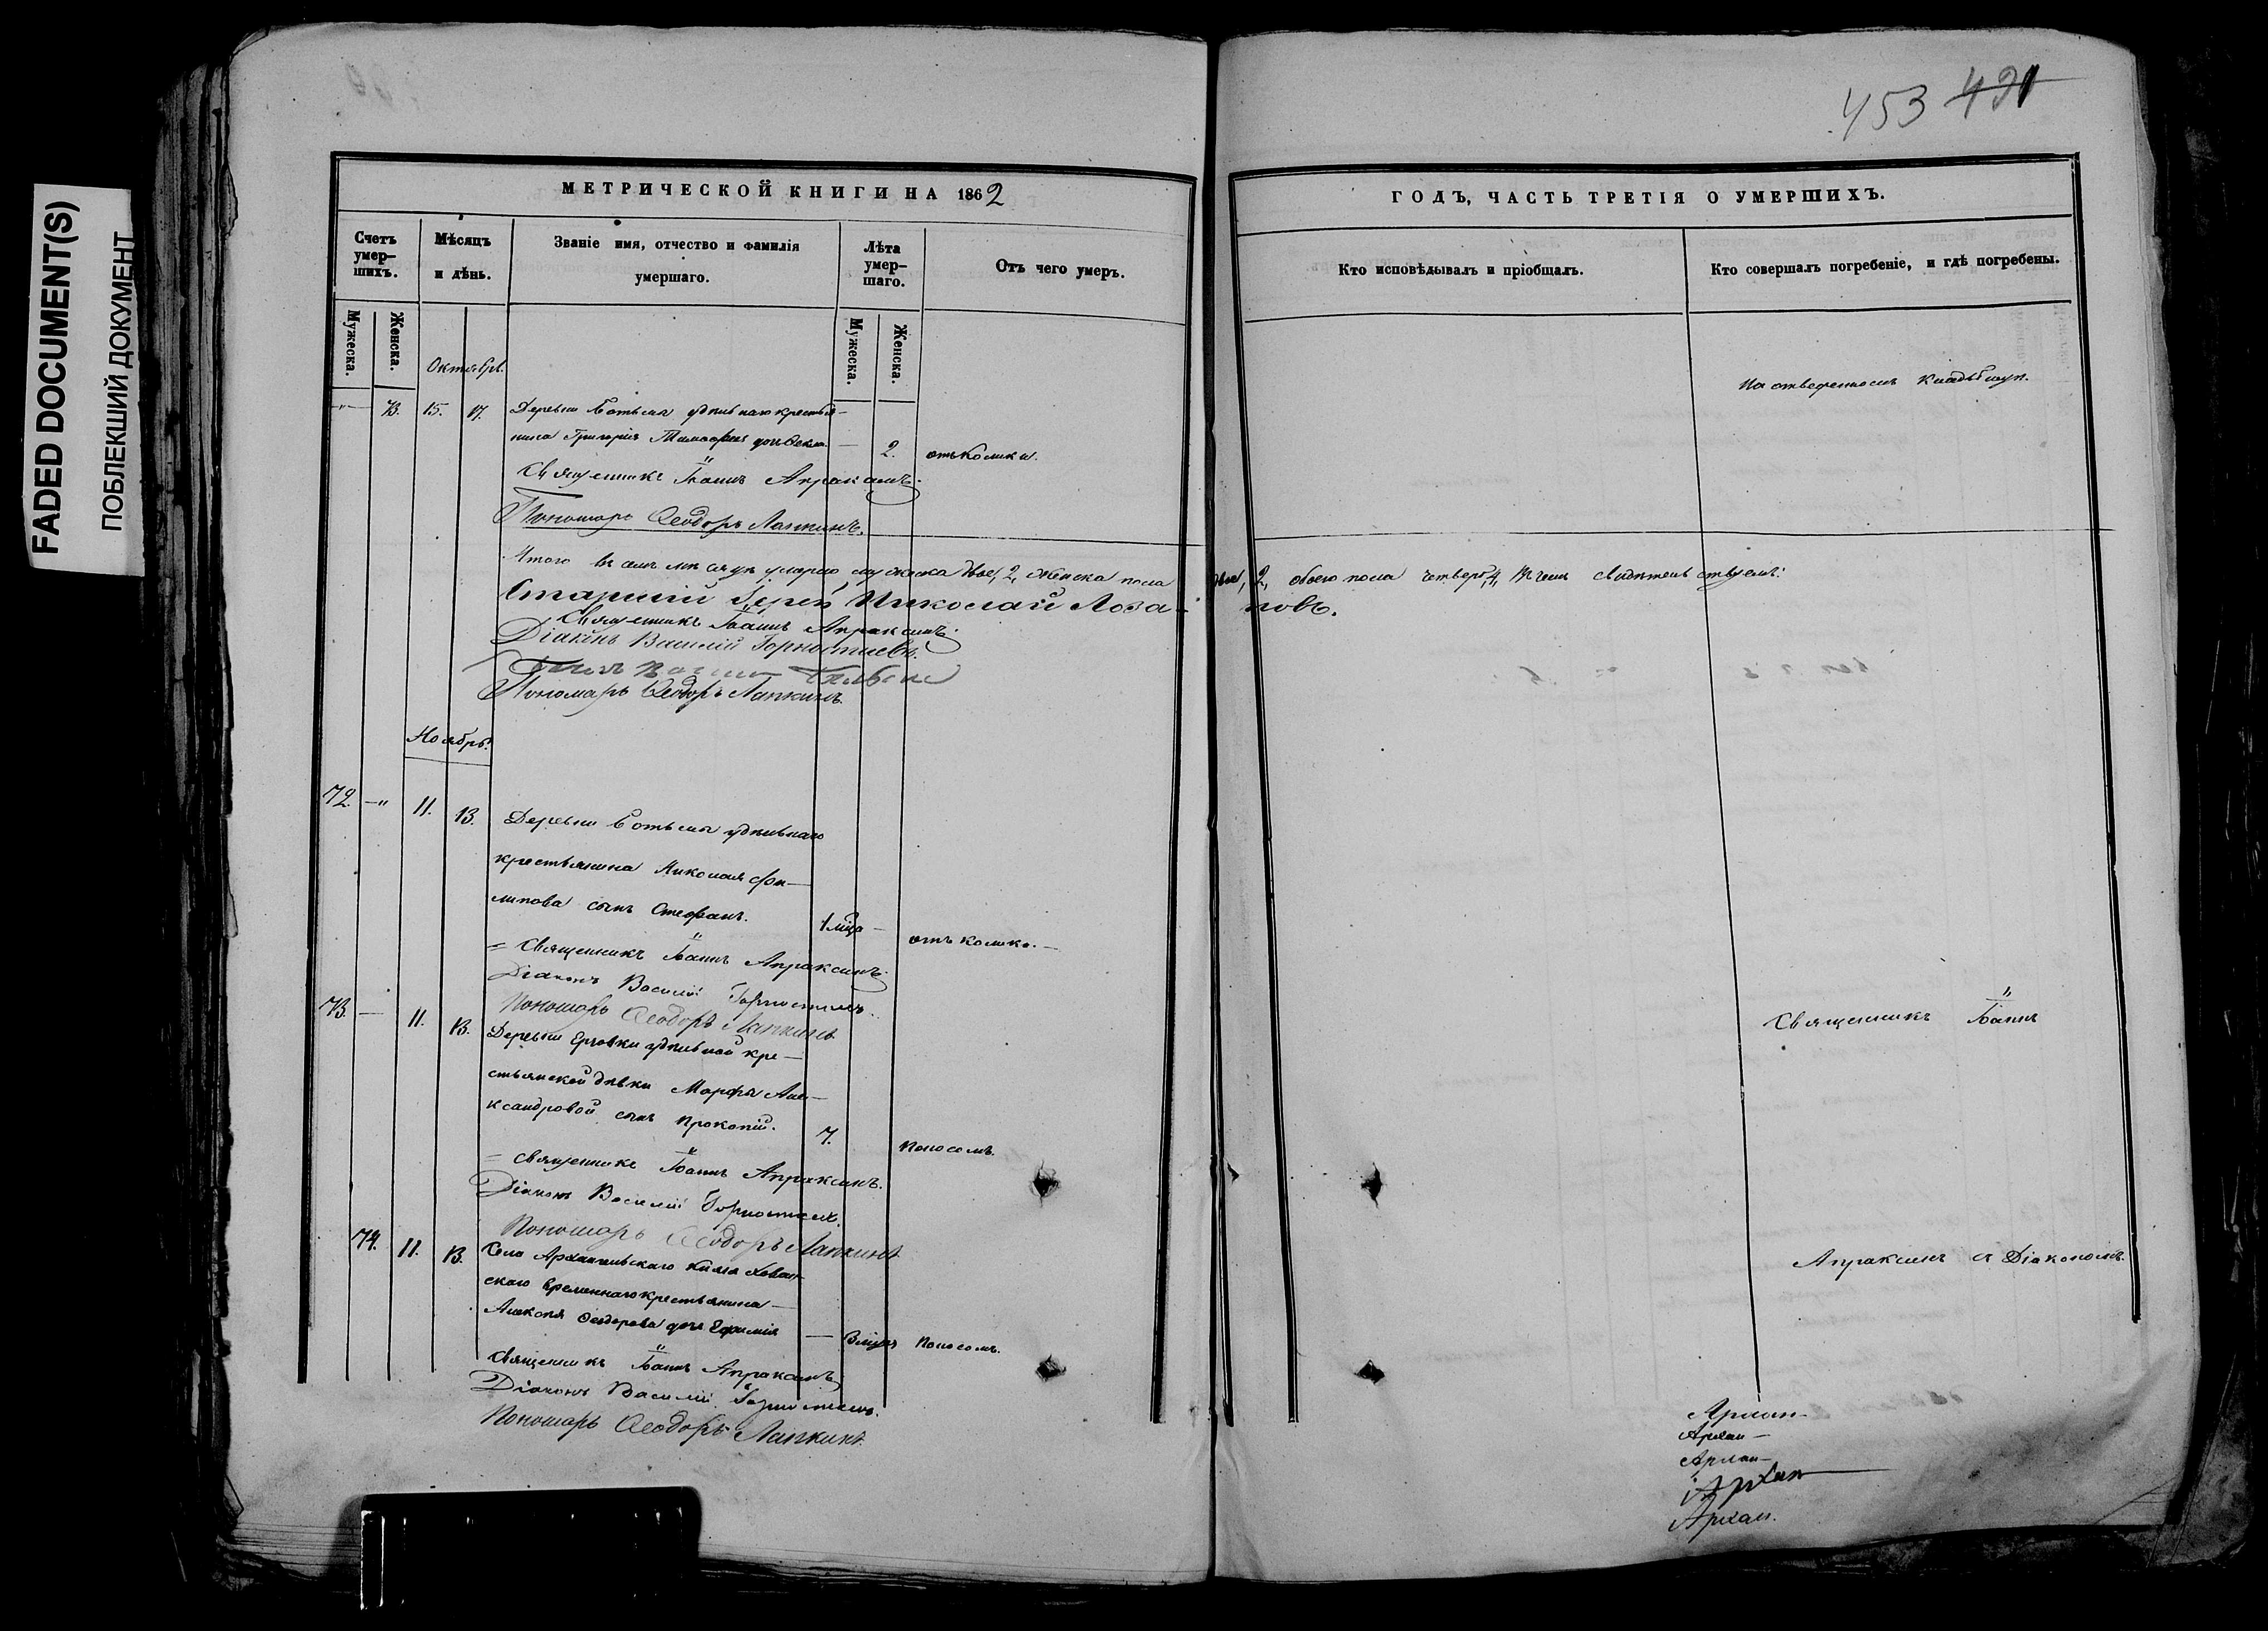 FADED DOCUMENT(S)
ПОБЛЕКШИЙ ДОКУМЕНТ
453 491
МЕТРИЧЕСКОЙ КНИГИ НА 1862
ГОДЪ, ЧАСТЬ ТРЕТІЯ О УМЕРШИХЪ.
Счетъ умер-шихъ.
Мѣсяцъ и дѣнь.
Званіе имя, отчество и фамилія умершаго.
Лѣта умер-шаго.
Отъ чего умеръ.
Кто исповѣдывалъ и пріобщалъ.
Кто совершалъ погребеніе, и гдѣ погребены.
Мужеска.
Женска.
Мужеска.
Женска.
Октябрь.
На отведенномъ кладбищѣ.
73. 15. 17. Деревни удѣльнаго крестья-
нина Григорія Тимофеева дочь Фекла. — 2. отъ колики.
Священникъ Іоаннъ Апраксинъ.
Пономарь Ѳеодоръ Лапкинъ.
Итого въ семъ мѣсяцѣ умерло мужеска двое, 2, женска пола двое, 2, обоего пола четверо, 4, въ чемъ и свидѣтельствуемъ:
Старшій Іерей Николай Лоза-новъ.
Священникъ Іоаннъ Апраксинъ.
Діаконъ Василій Горностаевъ.
Пономарь Ѳеодоръ Лапкинъ.
Ноябрь.
72. —" 11. 13. Деревни удѣльнаго
крестьянина Николая Фи-
липова сынъ Стефанъ. 1 мѣся — отъ колики. —
= Священникъ Іоаннъ Апраксинъ.
Діаконъ Василій Горностаевъ.
Пономарь Ѳеодоръ Лапкинъ
73. — 11. 13. Деревни удѣльной кре-
стьянской дѣвки Марфы Але-
ксандровой сынъ Прокопій. 7. поносомъ.
= Священникъ Іоаннъ Апраксинъ.
Діаконъ Василій Горностаевъ.
Пономарь Ѳеодоръ Лапкинъ
Священникъ Іоаннъ
74. 11. 13. Села Архангельскаго Князя Хован-
скаго временнаго крестьянина —
Алексѣя Ѳеодорова дочь Ефимія — 3 мѣсяц поносомъ.
Священникъ Іоаннъ Апраксинъ
Діаконъ Василій Горностаевъ.
Пономарь Ѳеодоръ Лапкинъ.
Апраксинъ съ Діакономъ.
Архан-
Архан-
Архан-
Архан
Архан.